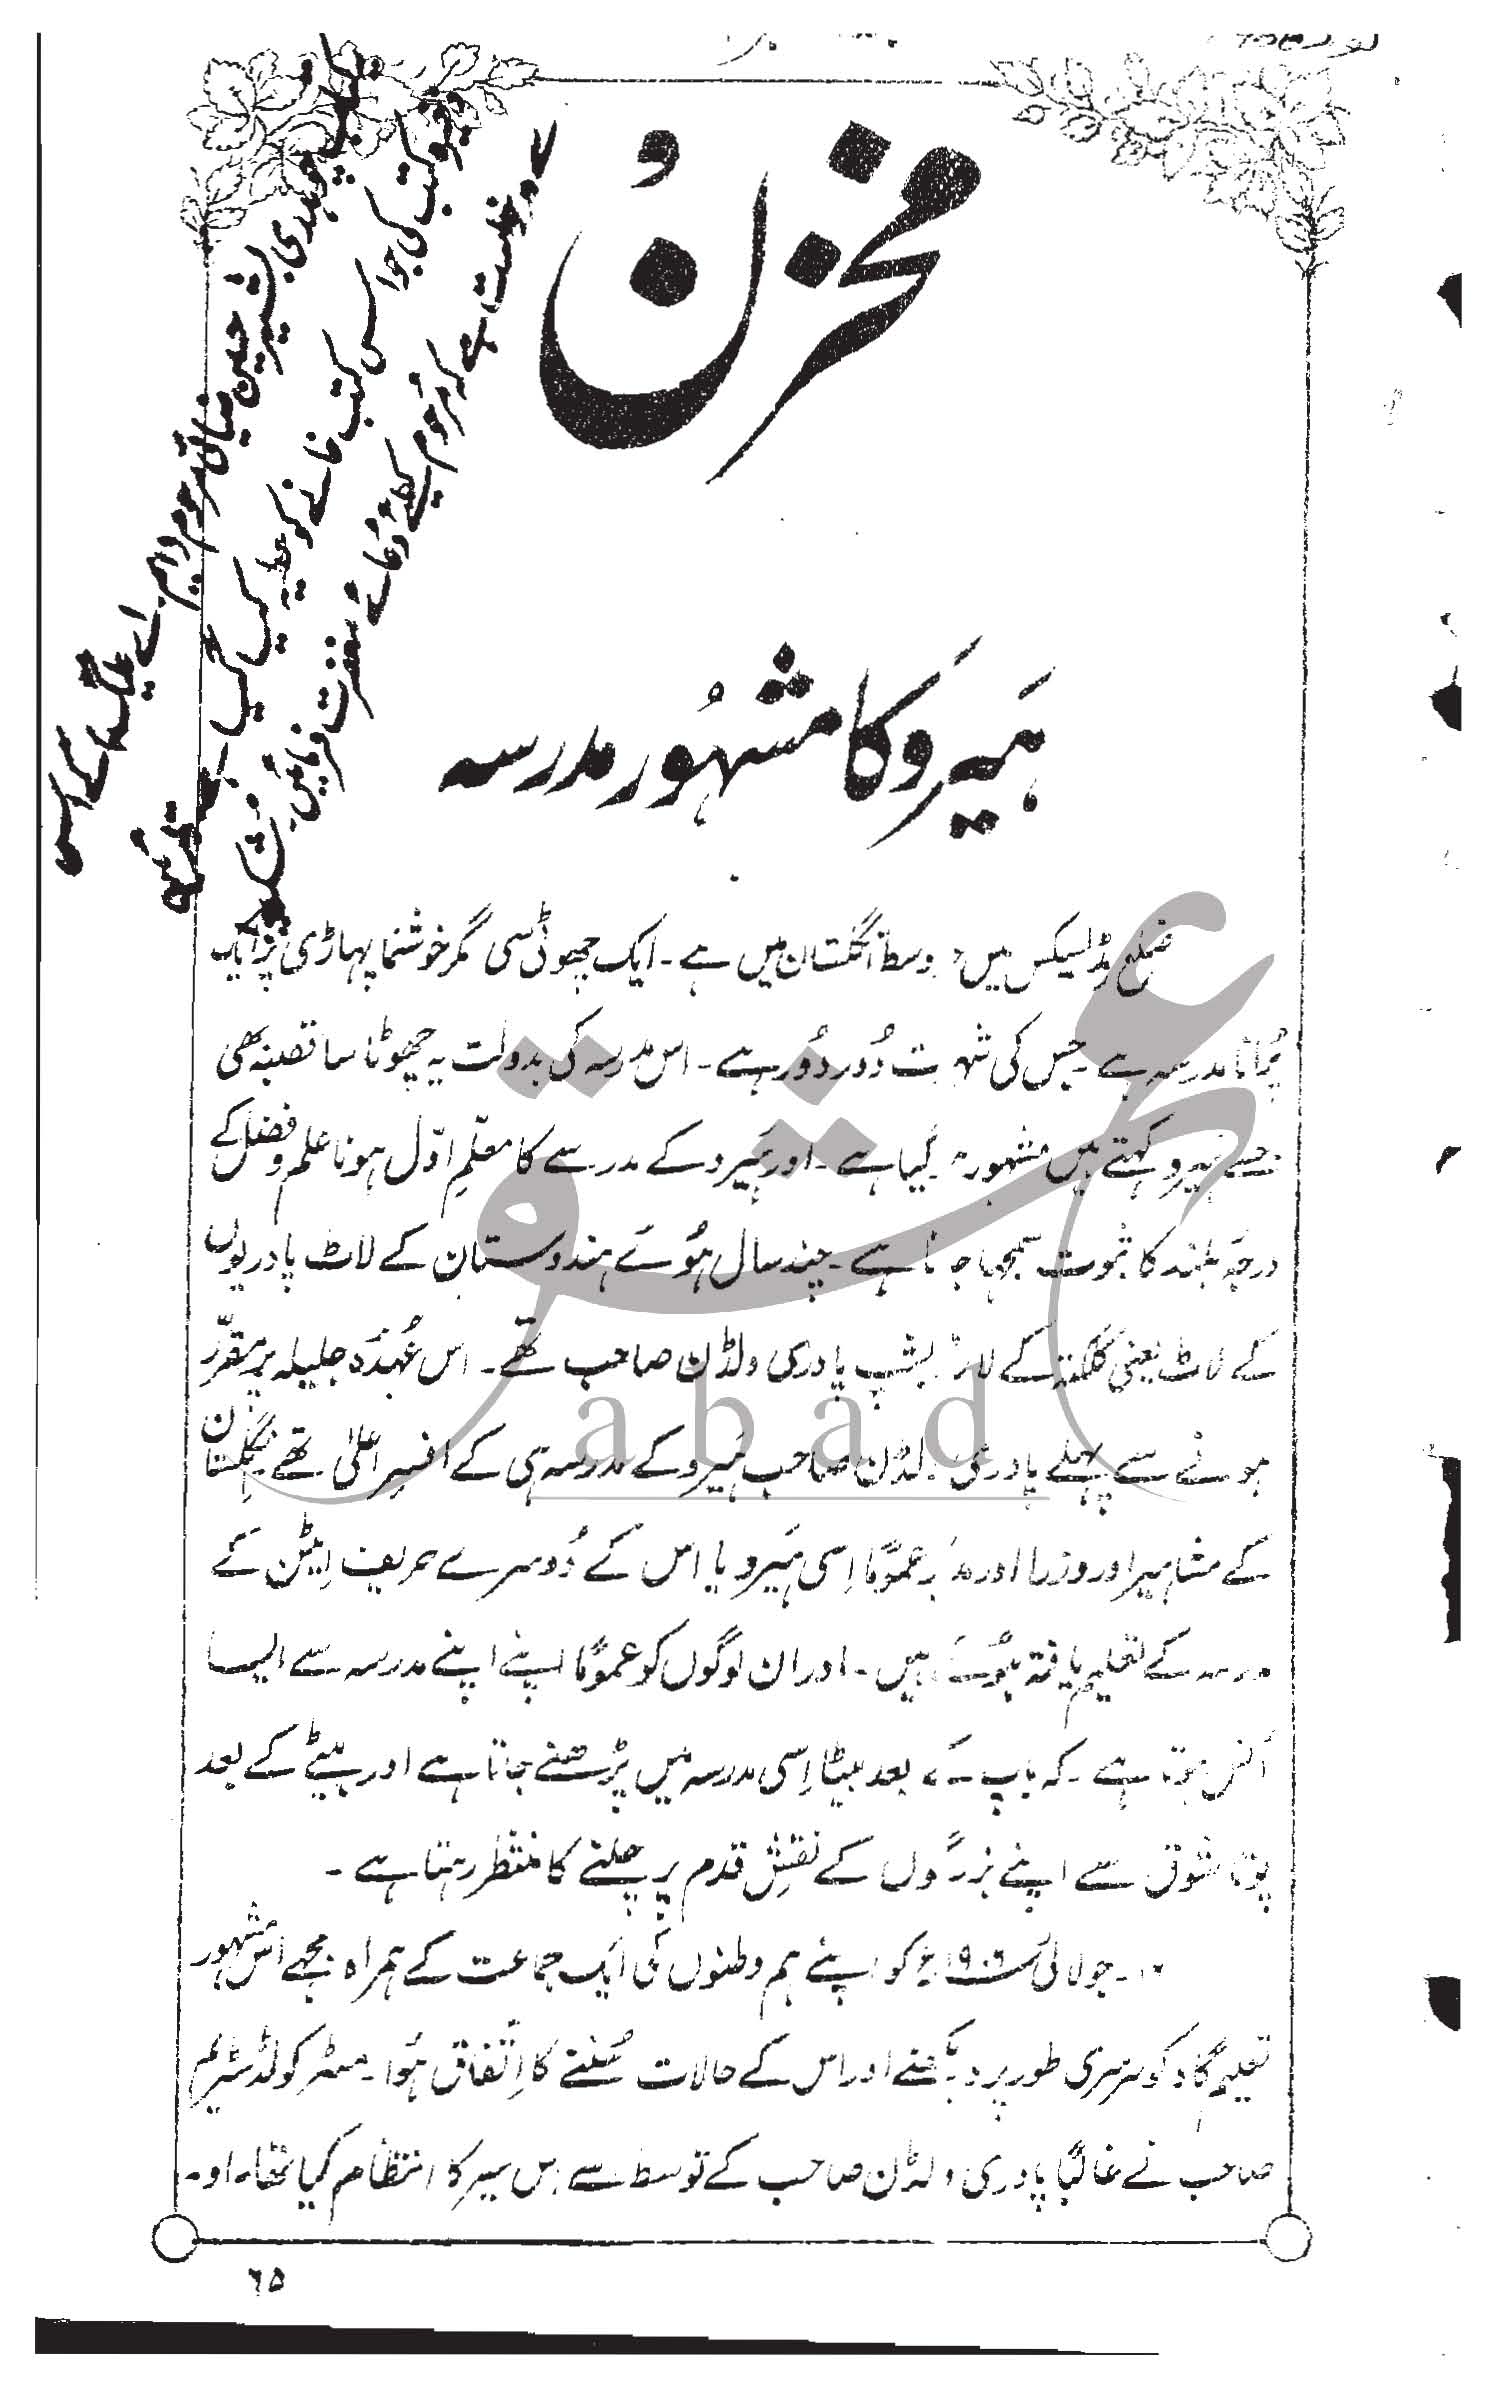 مخزن
ہیرو کا مشہور مدرسہ
ضلع مڈلیکس میں جو وسط انگلستان میں ہے۔ ایک چھوٹی سی مگر خوشنما پہاڑی پر ایک
پُرانا مدرسہ ہے۔ جس کی شہرت دُور دُور ہے۔ اس مدرسہ کی بدولت یہ چھوٹا سا قصبہ بھی
جسے ہیرو کہتے ہیں مشہور ہو گیا ہے۔ اور ہیرو کے مدرسے کا معلّمِ اوّل ہونا علم و فضل کے
درجۂ بلند کا ثبوت سمجھا جاتا ہے۔ چند سال ہُوئے ہندوستان کے لاٹ پادریوں
کے لاٹ یعنی کلکتہ کے لارڈ بشپ پادری ولڈن صاحب تھے۔ اس عُہدۂ جلیلہ پر مقرّر
ہونے سے پہلے پادری ولڈن صاحب ہیرو کے مدرسہ ہی کے افسرِ اعلیٰ تھے۔ انگلستان
کے مشاہیر اور وزرا اور مدبّر عموماً اِسی ہیرو یا اس کے دُوسرے حریف اِیٹن کے
مدرسہ کے تعلیم یافتہ ہوئے ہیں۔ اور ان لوگوں کو عموماً اپنے اپنے مدرسہ سے ایسا
اُنس ہوتا ہے۔ کہ باپ کے بعد بیٹا اِسی مدرسہ میں پڑھنے جاتا ہے اور بیٹے کے بعد
پوتا شوق سے اپنے بزرگوں کے نقشِ قدم پر چلنے کا منتظر رہتا ہے۔
جولائی ۱۹۰۶ء کو اپنے ہم وطنوں کی ایک جماعت کے ہمراہ مجھے اس مشہور
تعلیم گاہ کو سرسری طور پر دیکھنے اور اس کے حالات سُننے کا اِتّفاق ہُوا۔ مسٹر کولڈسٹریم
صاحب نے غالباً پادری ولڈن صاحب کے توسط سے اس سیر کا انتظام کیا تھا۔ اور
۶۵
چوہدری بشیر حسین ضیائی مرحوم و ایم۔ اے علیگ کے اس
کتب کی جو اس کتب خانے کو عطیہ کیا گیا۔
درخواست ہے کہ مرحوم کیلئے دُعائے مغفرت فرمائیں۔
عتیق
abad